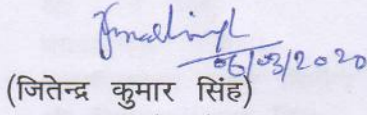 06/03/2020
(जितेन्द्र कुमार सिंह)